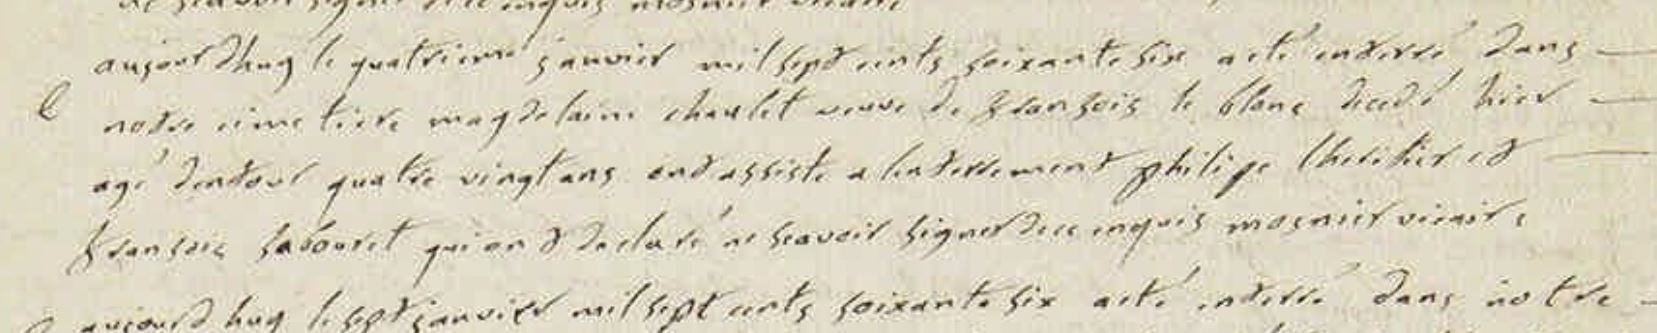 ne scavoir signer de ce enquis mosnier vicaire
aujourdhuy le quatrieme janvier mil sept cents soixante six a eté enterré dans
notre cimetiere magdelaine chaulet veuve de fransois le blanc decedé hier
agé dentour quatre vingt ans ont assisté a lenterrement philipe lheritier et
fransois sabouret qui ont declaré ne scavoir signer de ce enquis mosnier vicaire
aujourdhuy le sept janvier mil sept cents soixante six a eté enterré dans notre